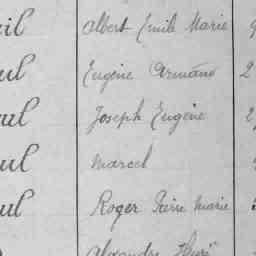 Albert Emile Marie
ul Eugène Armand 2
ul Joseph Eugène 2
ul Marcel
ul Roger Pierre Marie
Alexandre Henri